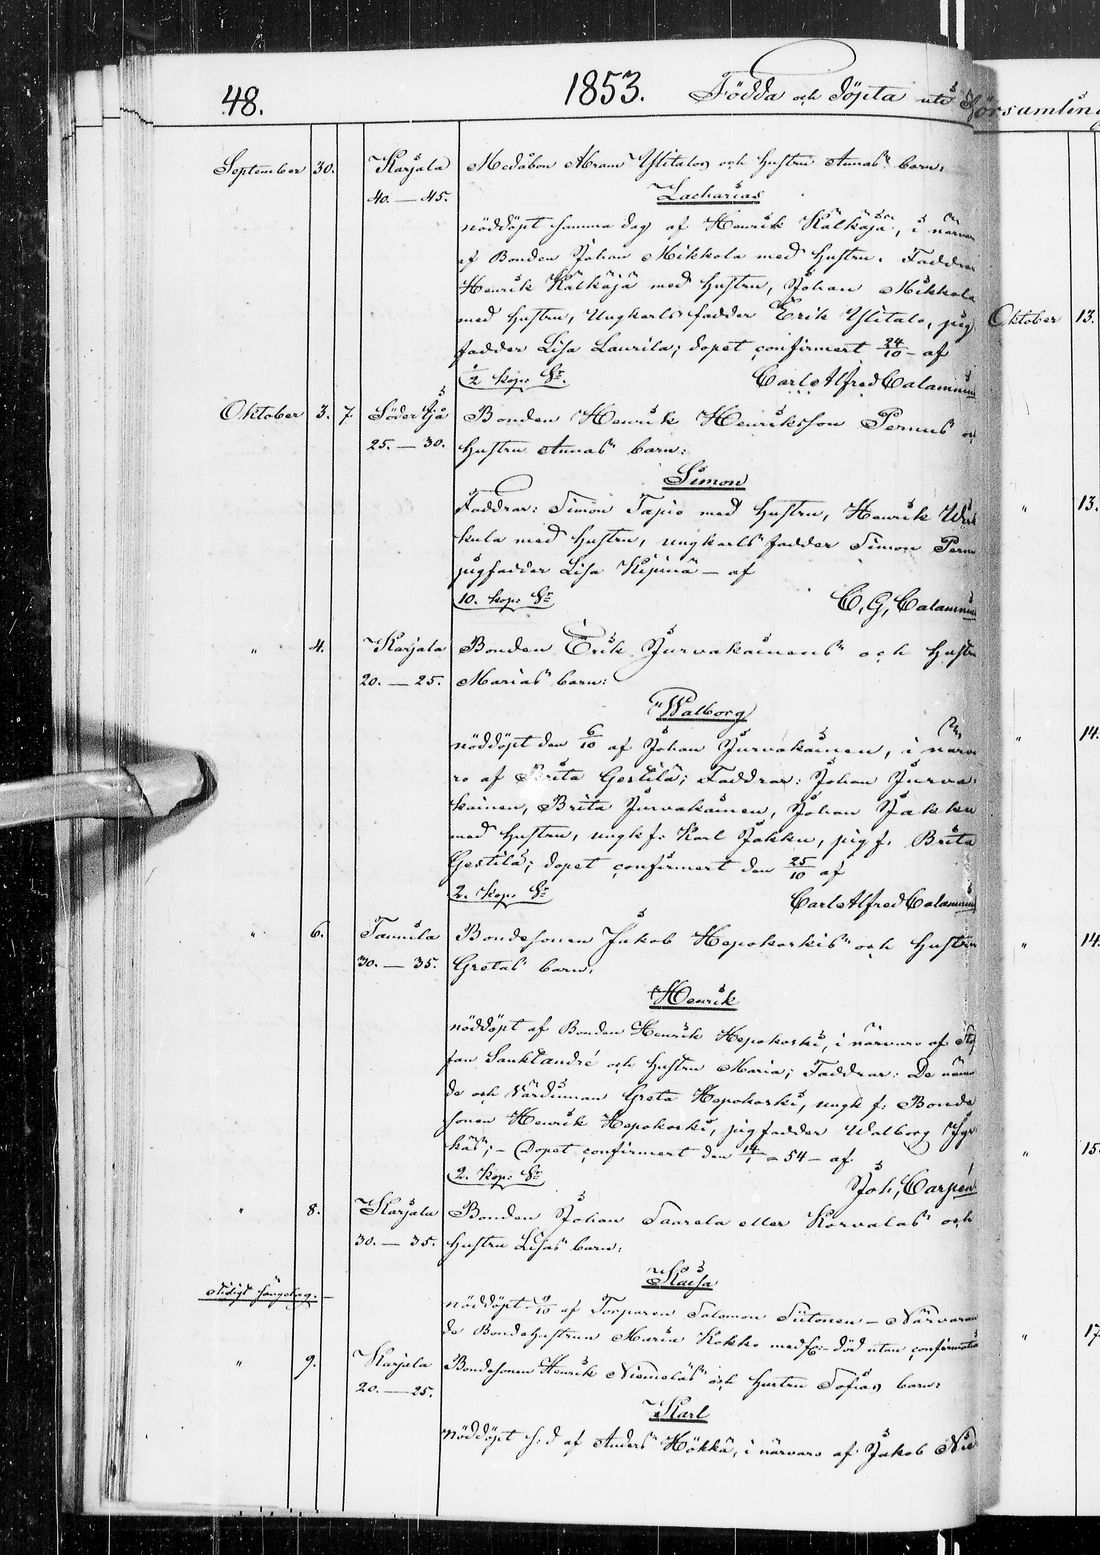 48. 1853. Födda och döpta uti Församling
September 30. Karjala Medåbon Abram Ylitalos och hustru Annas barn:
40. — 45. Zacharias
nöddöpt samma dag af Henrik Kälkäjä, i närvar
af Bonden Johan Mikkola med hustru. Faddrar
Henrik Kälkäjä med hustru, Johan Mikkola
med hustru, Ungkarls fadder Erik Ylitalo, pig
fadder Lisa Laurila; dopet confirmert 24/10 — af
2 kop. Sr. Carl Alfred Calamnius
Oktober 3. 7. Söder Ijå Bonden Henrik Henriksson Pernus och
25. — 30. hustru Annas barn:
Simon
Faddrar: Simon Tapio med hustru, Henrik
kula med hustru, ungkarls fadder Simon Pernu
pigfadder Lisa Kipinä — af
10. kop. Sr C. G. Calamnius
" 4. Karjala Bonden Erik Jurvakainens och hustru
20. — 25. Marias barn:
Walborg
nöddöpt den 6/10 af Johan Jurvakainen, i närva
ro af Brita Gestilä; Faddrar: Johan Jurva-
kainen, Brita Jurvakainen, Johan Jakku
med hustru, ungk f: Karl Jakku, pig f. Brita
Gestilä; dopet confirmert den 25/10 af
2. kop. Sr Carl Alfred Calamnius
" 6. Tannila Bondesonen Jakob Hepokoskis och hustru
30. — 35. Gretas barn.
Henrik
nöddöpt af Bonden Henrik Hepokoski, i närvaro af Sta
fan Sanktandré och hustru Maria; Faddrar: De nämn
de och Värdinnan Greta Hepokoski, ungk f: Bonde
sonen Henrik Hepokoski, pigfadder Walborg
käs; — Dopet confirmert den 14/1 54 — af
2. kop. Sr Joh. Carpén
" 8. Karjala Bonden Johan Saarela eller Korvalas och
30. — 35. hustru Lisas barn:
Kaisa
nöddöpt 9/10 af Torparen Salomon Siitonen — Närvaran
de Bondehustrun Maria Kokko med fl: — död utan confirmation
" 9. Karjala Bondesonen Henrik Niemeläs och hustru Sofias barn:
20. — 25. Karl
nöddöpt s: d af Anders Hökkä, i närvaro af Jakob Nie
Oktober 13.
" 13.
" 14.
" 14.
" 15
" 17